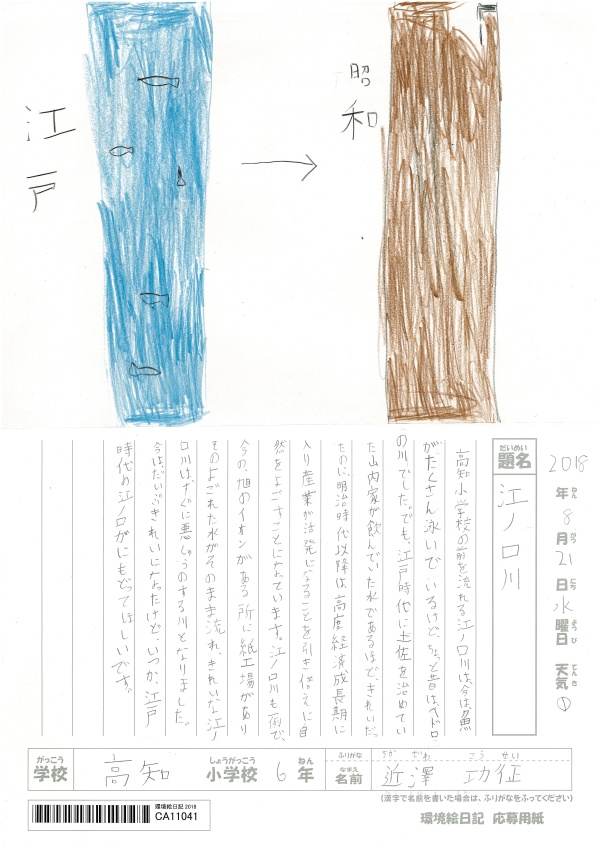 江戸
昭和
2018年8月21日水曜日 天気
ねん
がつ
にち
ようび
てんき
だいめい
題名
江ノ口川
高知小学校の前を流れる江ノ口川は、今は、魚
がたくさん泳いでいるけど、ちょっと昔は、ヘドロ
の川でした。でも、江戸時代に土佐を治めてい
た山内家が飲んでいた水であるほど、きれいだっ
たのに、明治時代以降は高度経済成長期に
入り産業が活発になることを引き替えに自
然をよごすことになっています。江ノ口川も例で、
今の、旭のイオンがある所に紙工場があり
そのよごれた水がそのまま流れ、きれいな江ノ
口川は、すぐに悪しゅうのする川となりました。
今は、だいぶきれいになったけど、いつか、江戸
時代の江ノ口がにもどってほしいです。
がっこう
学校
高知
しょうがっこう
小学校
6
ねん
年
ふりがな
なまえ
名前
ちかざわ こうせい
近澤 功征
(漢字で名前を書いた場合は、ふりがなをふってください)
環境絵日記 2018
CA11041
環境絵日記 応募用紙